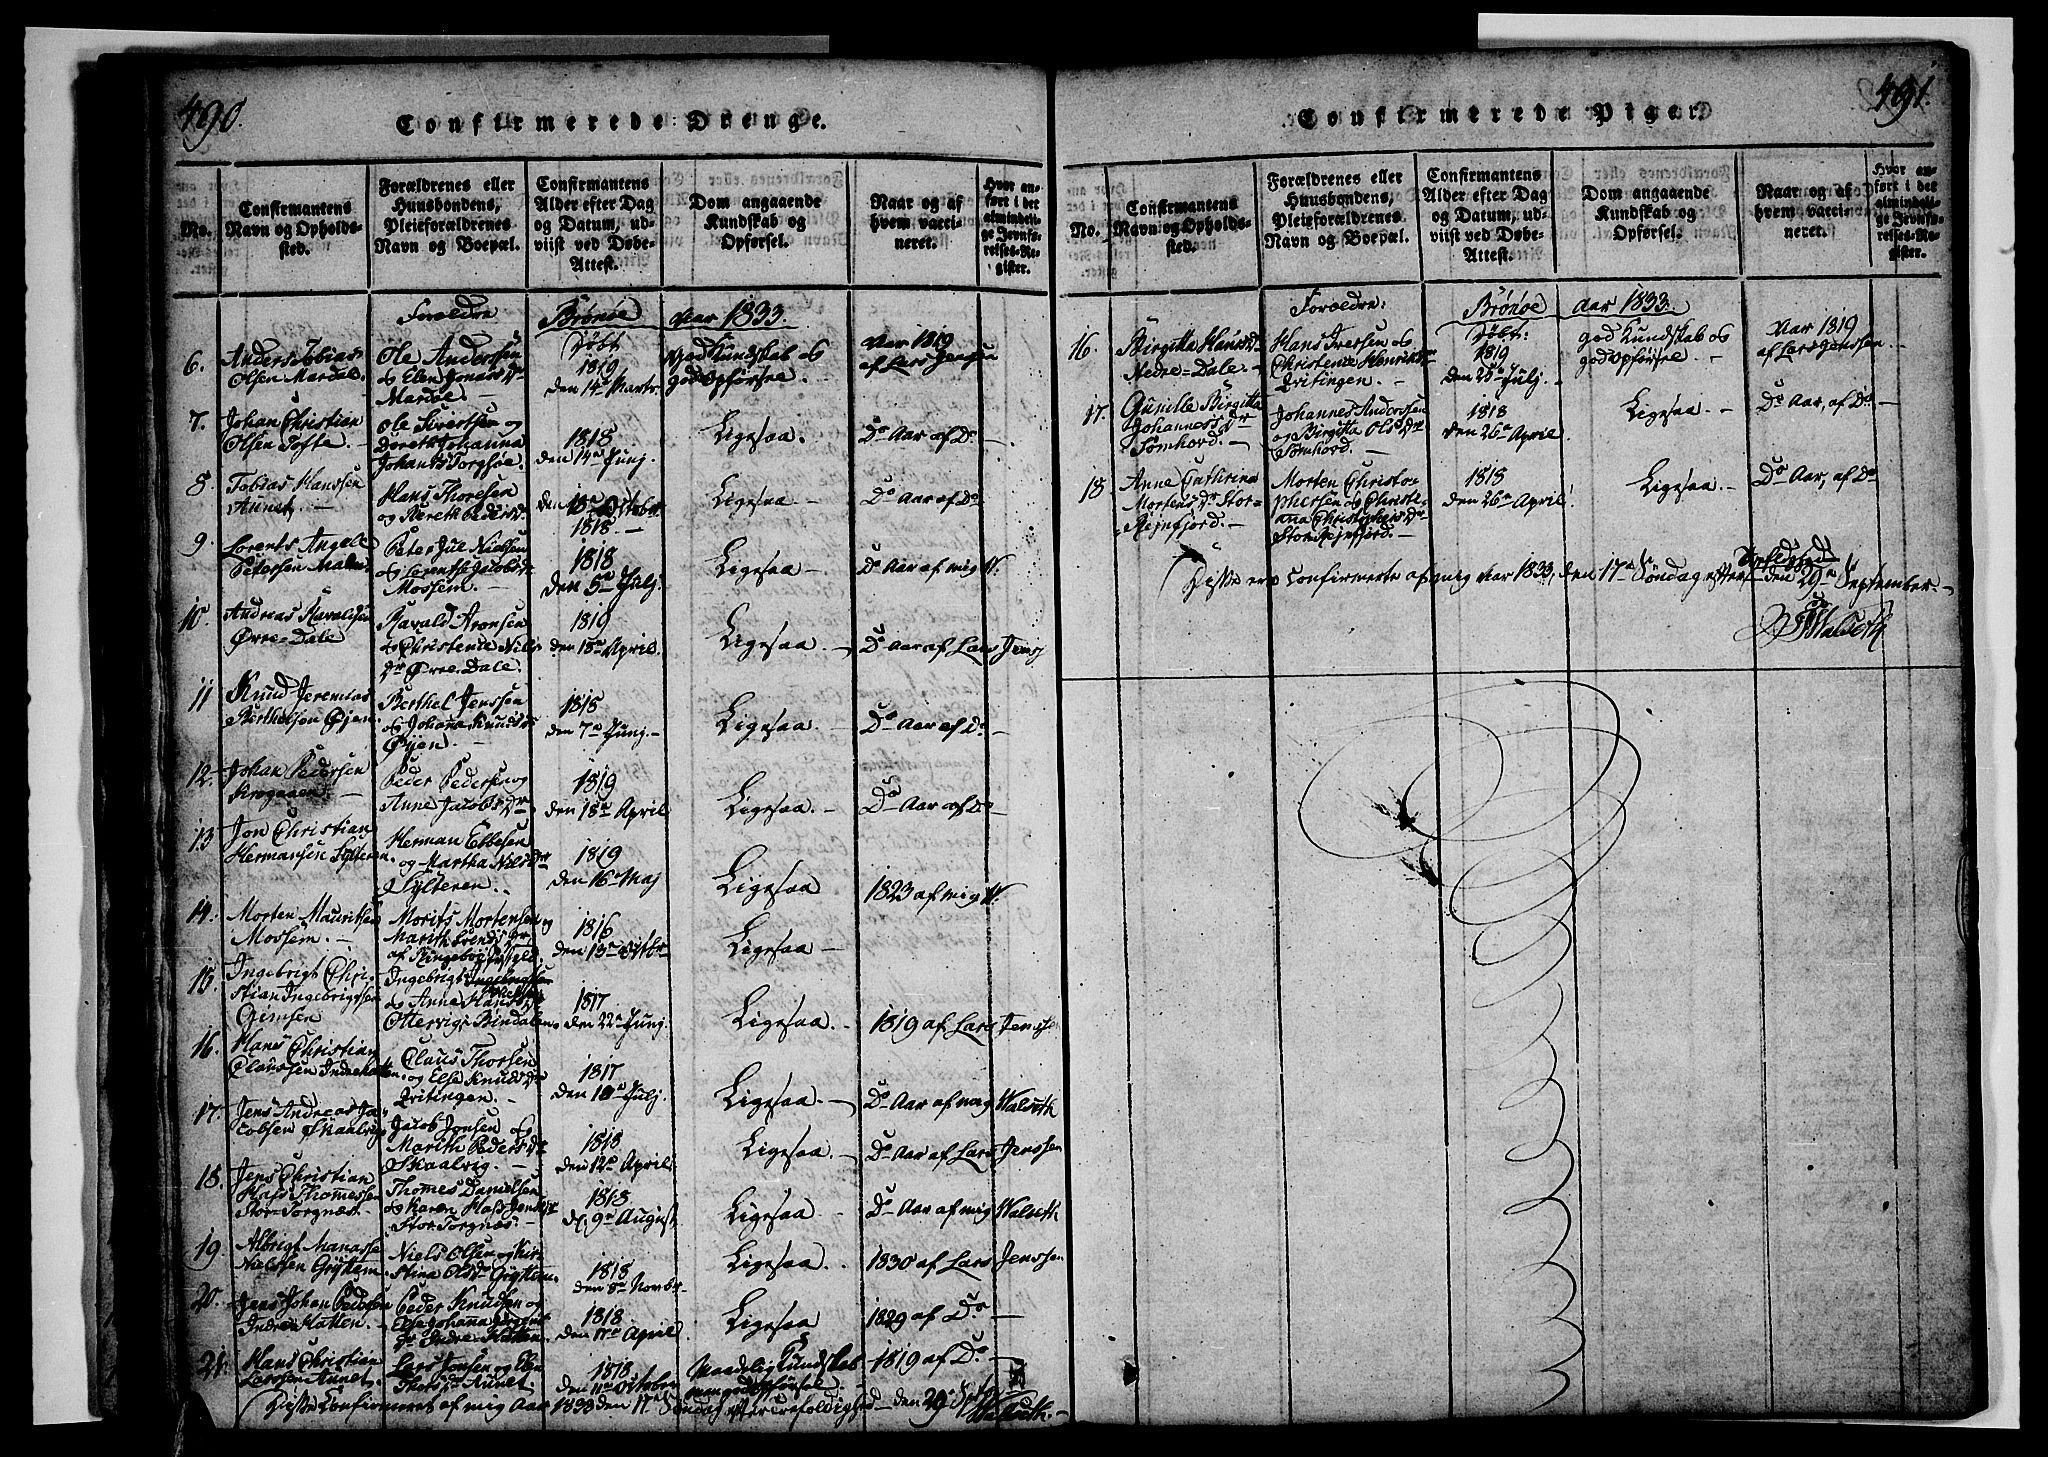 490.
Confirmerede Drenge.
No.
Confirmantens Navn og Opholdssted.
Forældrenes eller Huusbondens, Pleieforældrenes Navn og Boepæl.
Confirmantens Alder efter Dag og Datum, udviist ved Døbe-Attest.
Dom angaaende Kundskab og Opførsel.
Naar og af hvem vaccineret.
Hvor anført i det almindelige Jevnførelses-Register.
Forældre Brønøe Aar 1833.
6. Anders Tobias Olsen Mardal.
Ole Anderssen og Elen Jonasdr Mardøe
Døbt 1819 den 14de Marts
God Kundskab og god Opførsel
Aar 1819 af Lars
7. Johan Christian Olsen Tofte
Ole Sivertsen og Dorethe Johanna Johans Torghøe
1818 den 14de Junj.
Ligesaa.
Do Aar af Do
8. Tobias Hanssen Aunet.
Hans Thoresen og Bereth Pedersdr
den 18de Octobr 1818.
Ligesaa
Do Aar af Do
9. Lorents Angel Petersen
Peter Jul Nielsen og Lorentse Jacobsdr Mossem.
1818 den 5te Julj.
Ligesaa
Do Aar af mig W.
10. Andreas Havaldsen Øvre-Dale
Havald Aronsen og Christence Nilsdr Øvre-Dale.
1819 den 18de April.
Ligesaa.
Do Aar af Lars Jensen
11 Knud Jeremias Berthelsen Øyen.
Berthel Jenssen og Johanna Knudsdr Øyen.
1818 den 7de Junj.
Ligesaa
Do Aar af Do
12 Johan Pedersen
Peder Pedersen og Anne Jacobsdr
1819 den 18de April
Ligesaa.
Do Aar af Do
13 Jon Christian Hermansen Sylteren.
Herman Ebbesen og Martha Nilsdr Sylteren.
1819 den 16de Maj
Ligesaa
1823 af mig W.
14. Morten Mauritsen Mossem.
Morits Mortensen og Marith Svendsdr
1816 den 13de Octbr
Ligesaa
15. Ingebrigt Christian Ingebrigtsen
Ingebrigt og Anne Hansdr Ottervig i Bindalen.
1817 den 22de Junj.
Ligesaa.
1819 af Lars Jenssen
16. Hans Christian Claussen Indre-Hatten.
Claus Thorsen og Else Knudsdr Qvitingen.
1817 den 10de Julj.
Ligesaa.
Do Aar af mig Walseth
17. Jens Andreas Jacobsen Skaalvig
Jacob Jonsen og Marith Pedersdr Skaalvig.
1818 den 12te April
Ligesaa.
Do Aar af Lars Jenssen
18. Jens Christian Hass Thomessen Stor-Torgnæs.
Thomes Danielsen og Karen Hass Jensdr Stor-Torgnæs
1818 d. 9de August
Ligesaa
Do Aar af mig Walseth
19. Albrigt Manasse Nielssen Gryttem.
Niels Olsen og Kirstina Olsdr Gryttem.
1818 den 8de Novbr
Ligesaa.
1830 af Lars Jenssen
20. Jens Johan Pedersen Indre Hatten.
Peder Knudsen og Else Johanna Indre Hatten.
1818 den 17de April
Ligesaa
1829 af Do
21. Hans Christian Larssen Aunet.
Lars Jonsen og Elen Thorsdr Aunet.
1818 den 11te October
Maadelig Kundskab men god Opførsel.
1819 af Do
Disse Confirmeret af mig Aar 1833 den 17de Søndag efter Trefoldighed den 29de Septbr Walseth.
491.
Confirmerede Piger.
No.
Confirmantens Navn og Opholdssted.
Forældrenes eller Huusbondens, Pleieforældrenes Navn og Boepæl.
Confirmantens Alder efter Dag og Datum, udviist ved Døbe-Attest.
Dom angaaende Kundskab og Opførsel.
Naar og af hvem vaccineret.
Hvor anført i det almindelige Jevnførelses-Register.
Forældre: Brønøe Aar 1833.
16. Birgitta Hansdr Nedre-Dale.
Hans Iversen og Christence Henriksdr Qvitingen.
Døbt: 1819 den 25de Julj.
god Kundskab og god Opførsel.
Aar 1819 af Lars Jenssen.
17. Gunille Birgitta Johannesdr Tømhord.
Johannes Anderssen og Birgitta Olsdr Tømhord.
1818 den 26de April.
Ligesaa.
Do Aar, af Do
18. Anne Cathrina Mortensdr Stor-Rejnfjord.
Morten Christophersen og Christianna Christophersdr Stor Rejnfjord.
1818 den 26de April.
Ligesaa.
Do Aar, af Do
Disse ere Confirmerte af mig Aar 1833, den 17de Søndag efter den 29de September.
Walseth